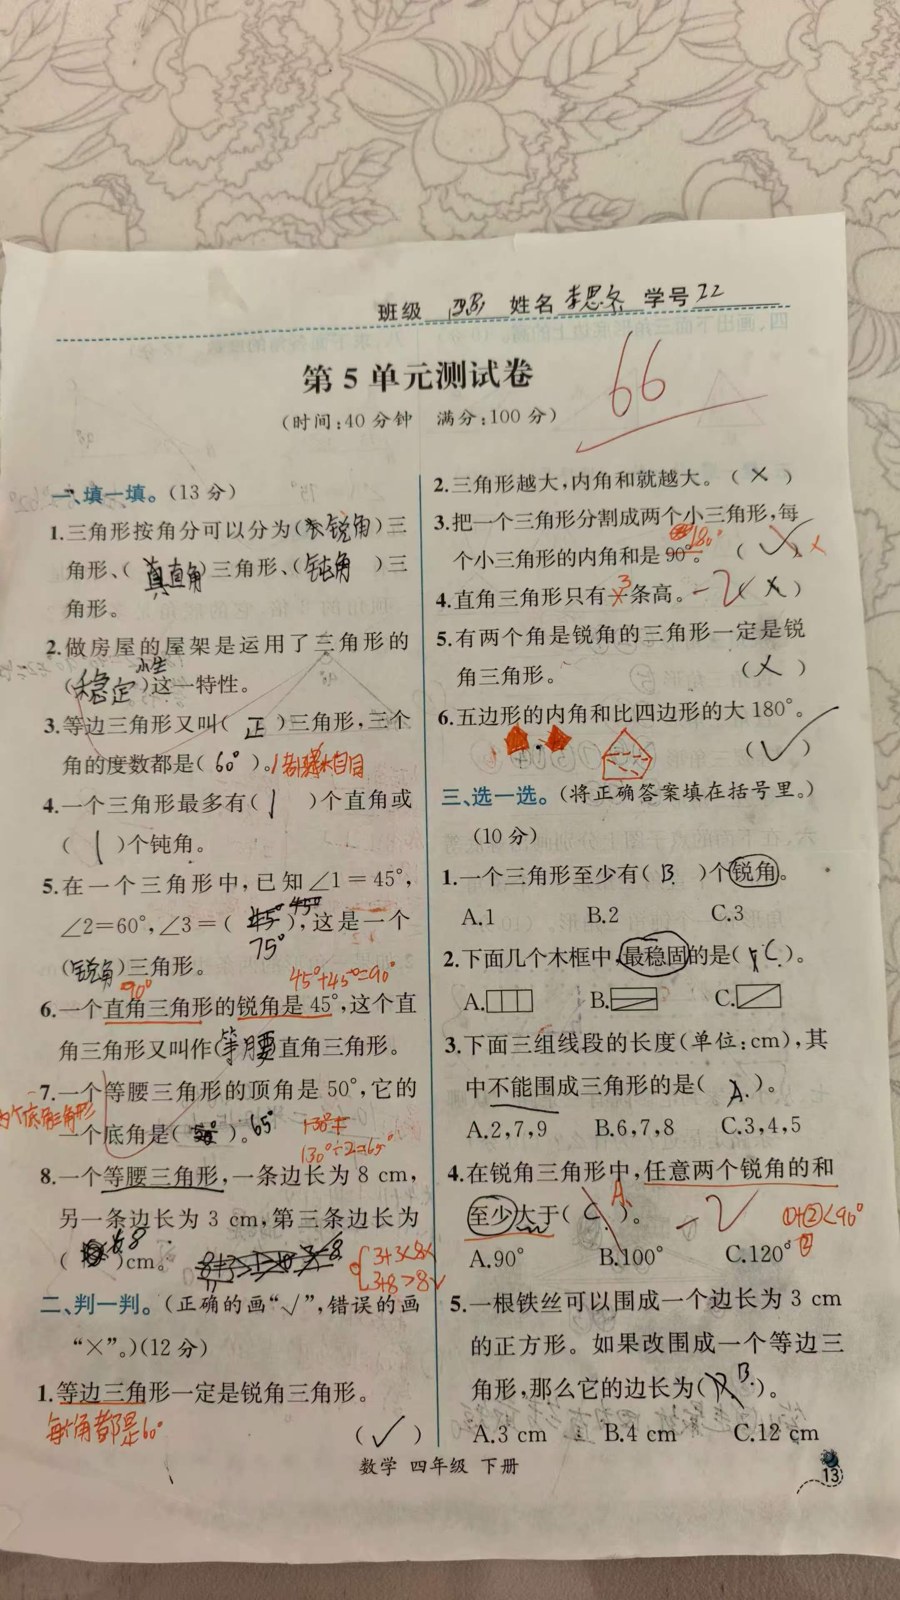 班级 姓名 李思冬 学号22
第5单元测试卷
66
(时间:40分钟 满分:100分)
一、填一填。(13分)
1.三角形按角分可以分为(锐角)三
角形、(直角)三角形、(钝角)三
角形。
2.做房屋的屋架是运用了三角形的
(稳定性)这一特性。
3.等边三角形又叫(正)三角形,三个
角的度数都是(60°)。
4.一个三角形最多有(1)个直角或
(1)个钝角。
5.在一个三角形中,已知∠1=45°,
45°
∠2=60°,∠3=(45°),这是一个
75°
(锐角)三角形。
90° 45°+45°=90°
6.一个直角三角形的锐角是45°,这个直
角三角形又叫作(等腰)直角三角形。
7.一个等腰三角形的顶角是50°,它的
一个底角是( )。65°
130°÷2=65°
8.一个等腰三角形,一条边长为8 cm,
另一条边长为3 cm,第三条边长为
(8)cm。
3+3<8×
3+8>8√
二、判一判。(正确的画“√”,错误的画
“×”。)(12分)
1.等边三角形一定是锐角三角形。
每个角都是60°
(√)
2.三角形越大,内角和就越大。(×)
3.把一个三角形分割成两个小三角形,每
180°
个小三角形的内角和是90°。(√)×
3
4.直角三角形只有×条高。-2(×)
5.有两个角是锐角的三角形一定是锐
角三角形。(×)
6.五边形的内角和比四边形的大180°。
(√)
三、选一选。(将正确答案填在括号里。)
(10分)
1.一个三角形至少有(B)个锐角。
A.1 B.2 C.3
2.下面几个木框中,最稳固的是(C)。
A. B. C.
3.下面三组线段的长度(单位:cm),其
中不能围成三角形的是(A)。
A.2,7,9 B.6,7,8 C.3,4,5
4.在锐角三角形中,任意两个锐角的和
A
至少大于(C)。-2
①+②<90°
A.90° B.100° C.120°
5.一根铁丝可以围成一个边长为3 cm
的正方形。如果改围成一个等边三
角形,那么它的边长为(B)。
A.3 cm B.4 cm C.12 cm
数学 四年级 下册
13